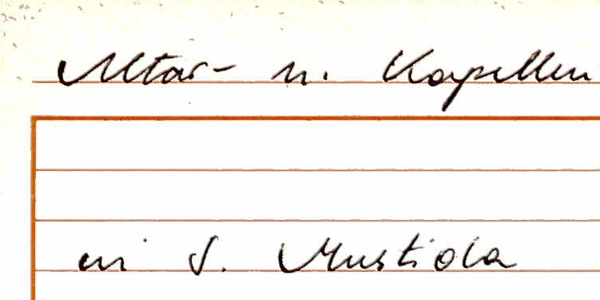 Altar- u. Kapellen
in S. Mustiola